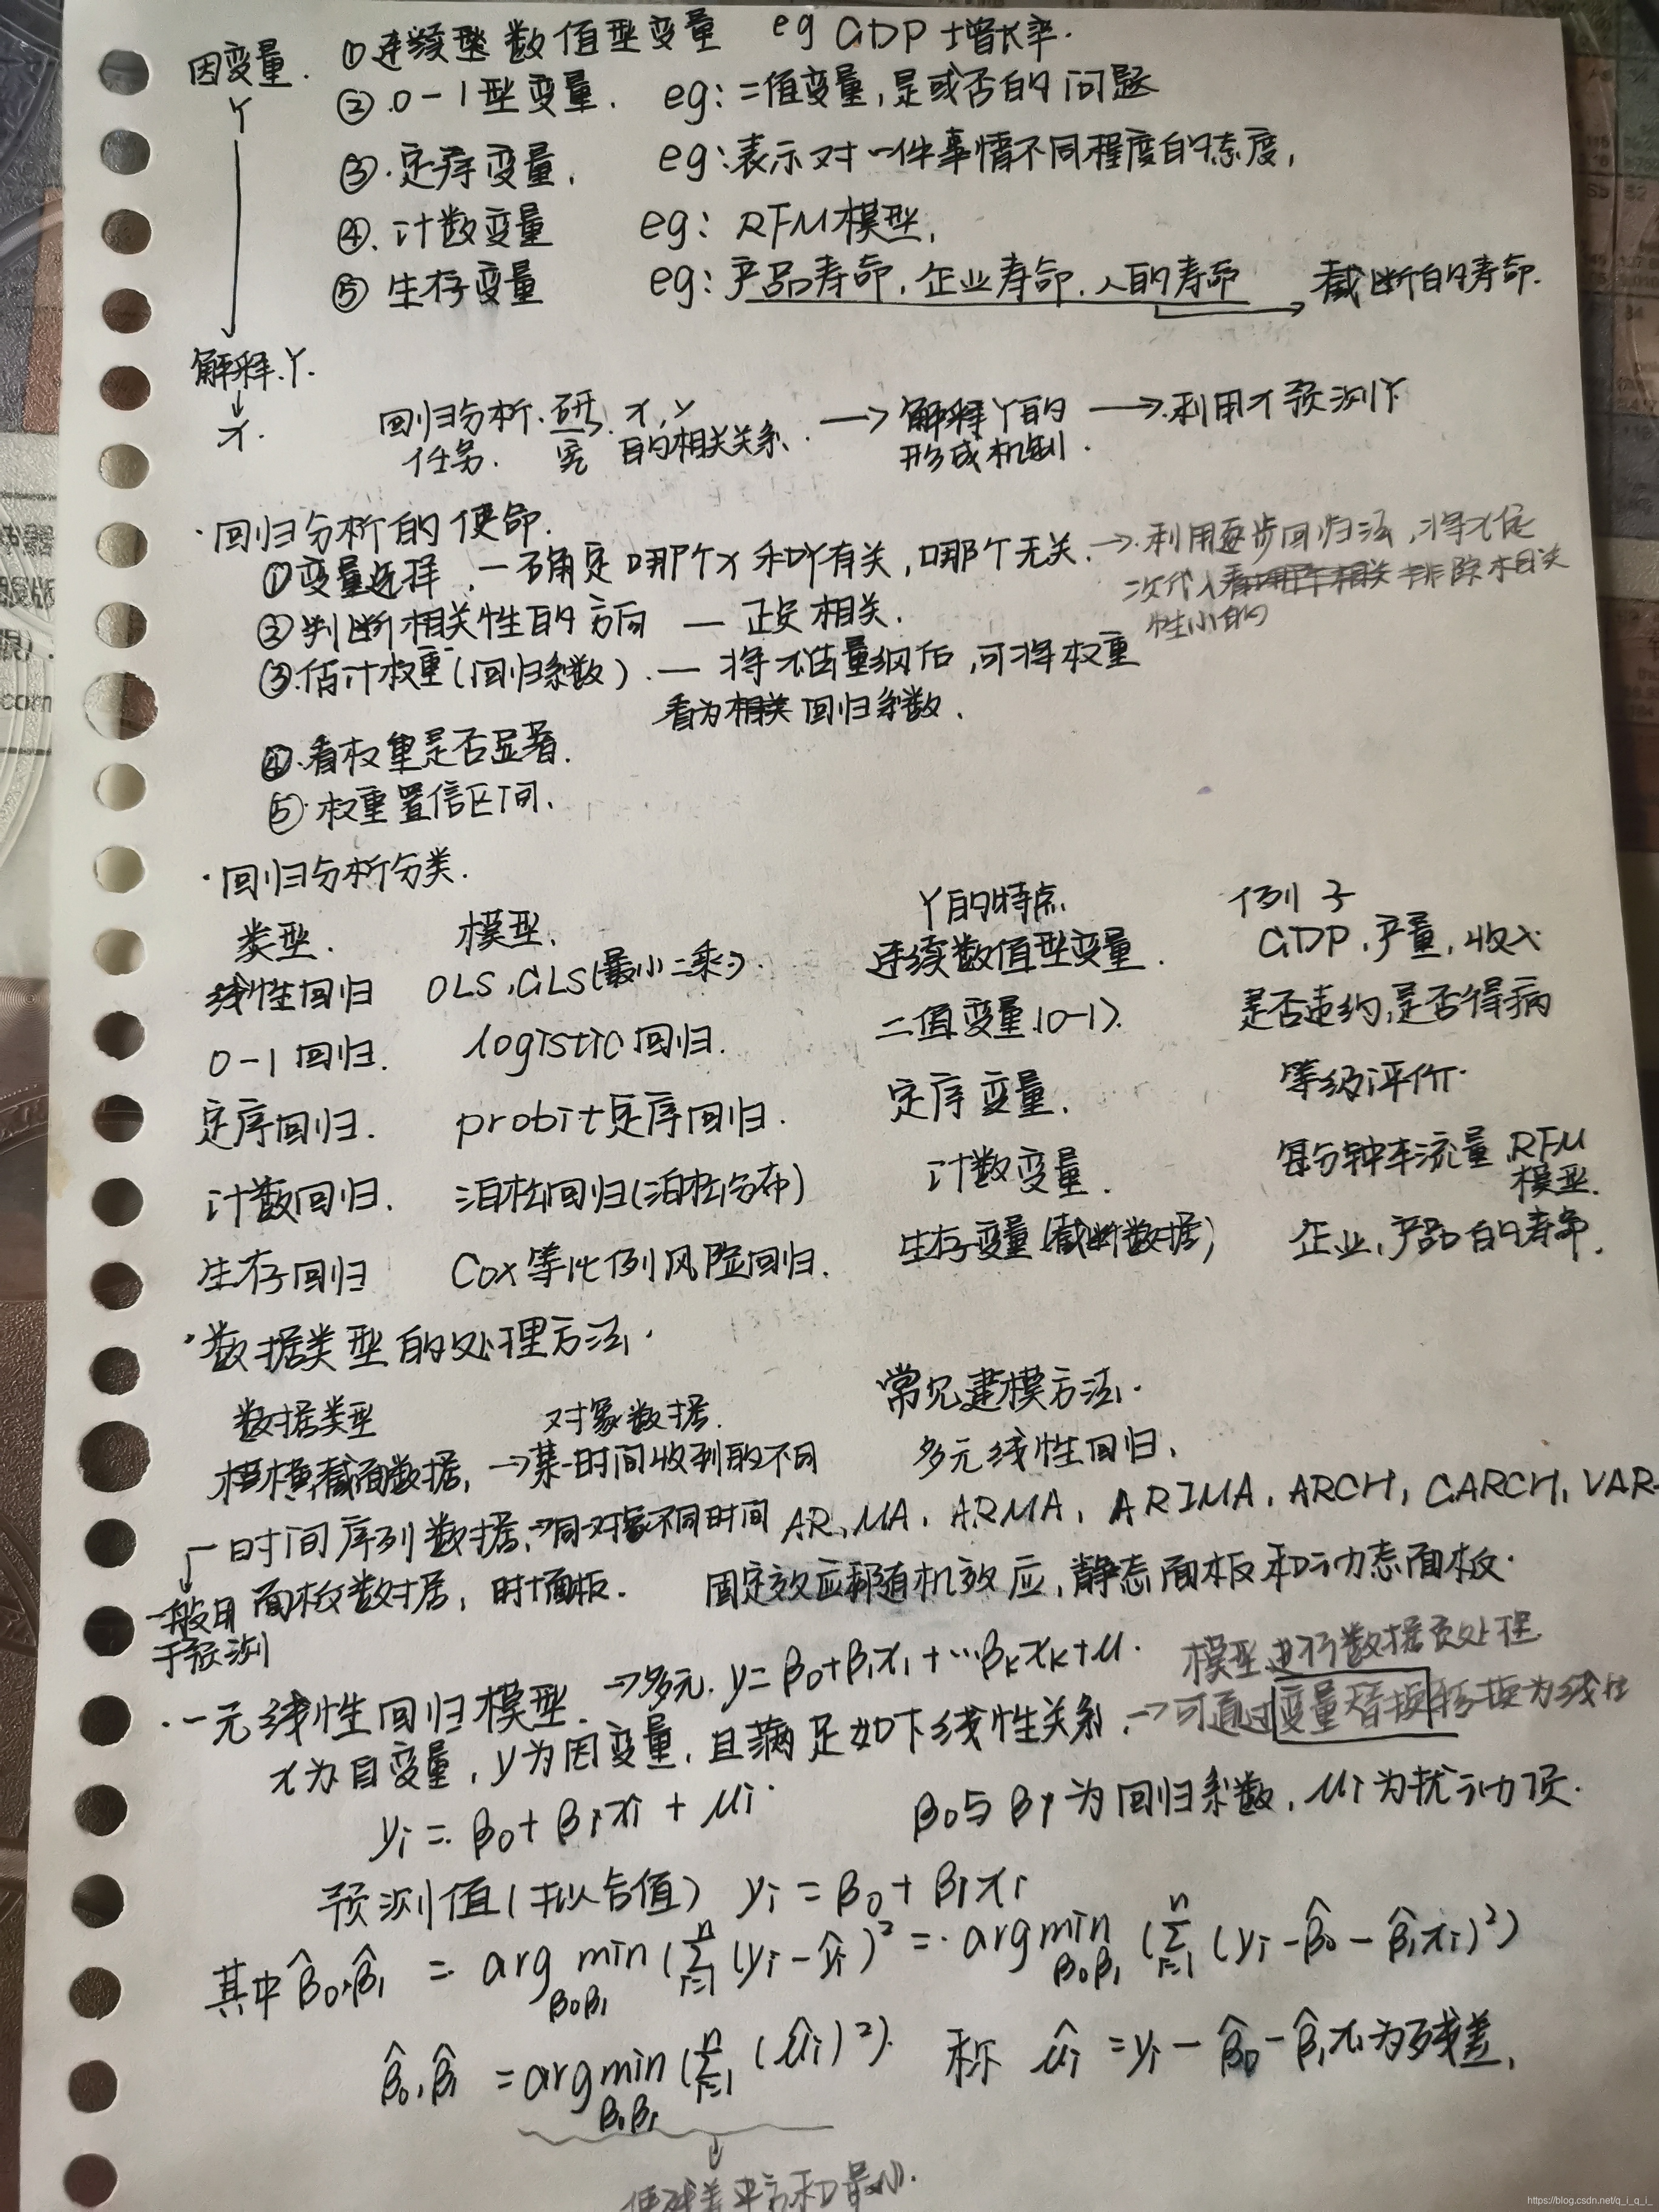 因变量. ①连续型数值型变量 eg GDP 增长率.
Y ②.0-1型变量. eg:二值变量,是或否的问题
③.定序变量. eg:表示对一件事情不同程度的态度,
④.计数变量 eg: RFM模型,
⑤生存变量 eg:产品寿命,企业寿命,人的寿命 → 截断的寿命.
解释.Y.
x.
回归分析.研究 x,y 的相关关系. → 解释Y的形成机制. → 利用x预测Y
任务.
·回归分析的使命.
①变量选择,一确定哪个x和Y有关,哪个无关. → 利用逐步回归法,将x依
次代入 排除相关
性小的
②判断相关性的方向 — 正负相关.
③.估计权重(回归系数). — 将x去量纲后,可将权重
看为 回归系数.
④.看权重是否显著.
⑤.权重置信区间.
·回归分析分类.
类型. 模型. Y的特点 例子
线性回归 OLS,GLS(最小二乘) 连续数值型变量. GDP,产量,收入
0-1回归. logistic回归. 二值变量(0-1). 是否违约,是否得病
定序回归. probit定序回归. 定序变量. 等级评价.
计数回归. 泊松回归(泊松分布) 计数变量. 每分钟车流量 RFM模型.
生存回归 Cox等比例风险回归. 生存变量(截断数据) 企业,产品的寿命.
·数据类型的处理方法.
数据类型 对象数据. 常见建模方法.
横截面数据, →某一时间收到的不同 多元线性回归.
时间序列数据,→同对象不同时间 AR,MA,ARMA,ARIMA,ARCH,GARCH,VAR
面板数据, 时+面板. 固定效应和随机效应,静态面板和动态面板.
一般用
于预测
·一元线性回归模型. →多元. y=β0+β1x1+…βkxk+μ. 模型进行数据预处理
x为自变量,y为因变量,且满足如下线性关系. →可通过变量替换转换为线性
yi=β0+β1xi+μi. β0与β1为回归系数,μi为扰动项.
预测值(拟合值) yi=β0+β1xi
其中β̂0,β̂1 = arg min β0β1 (Σ i=1 n (yi-ŷi)²=.arg min β0β1 (Σ i=1 n (yi-β̂0-β̂1xi)²)
β̂0,β̂1 = arg min β0β1 (Σ i=1 n (μ̂i)²). 称 μ̂i=yi-β̂0-β̂1xi为残差,
使残差平方和最小.
https://blog.csdn.net/q_i_q_i_